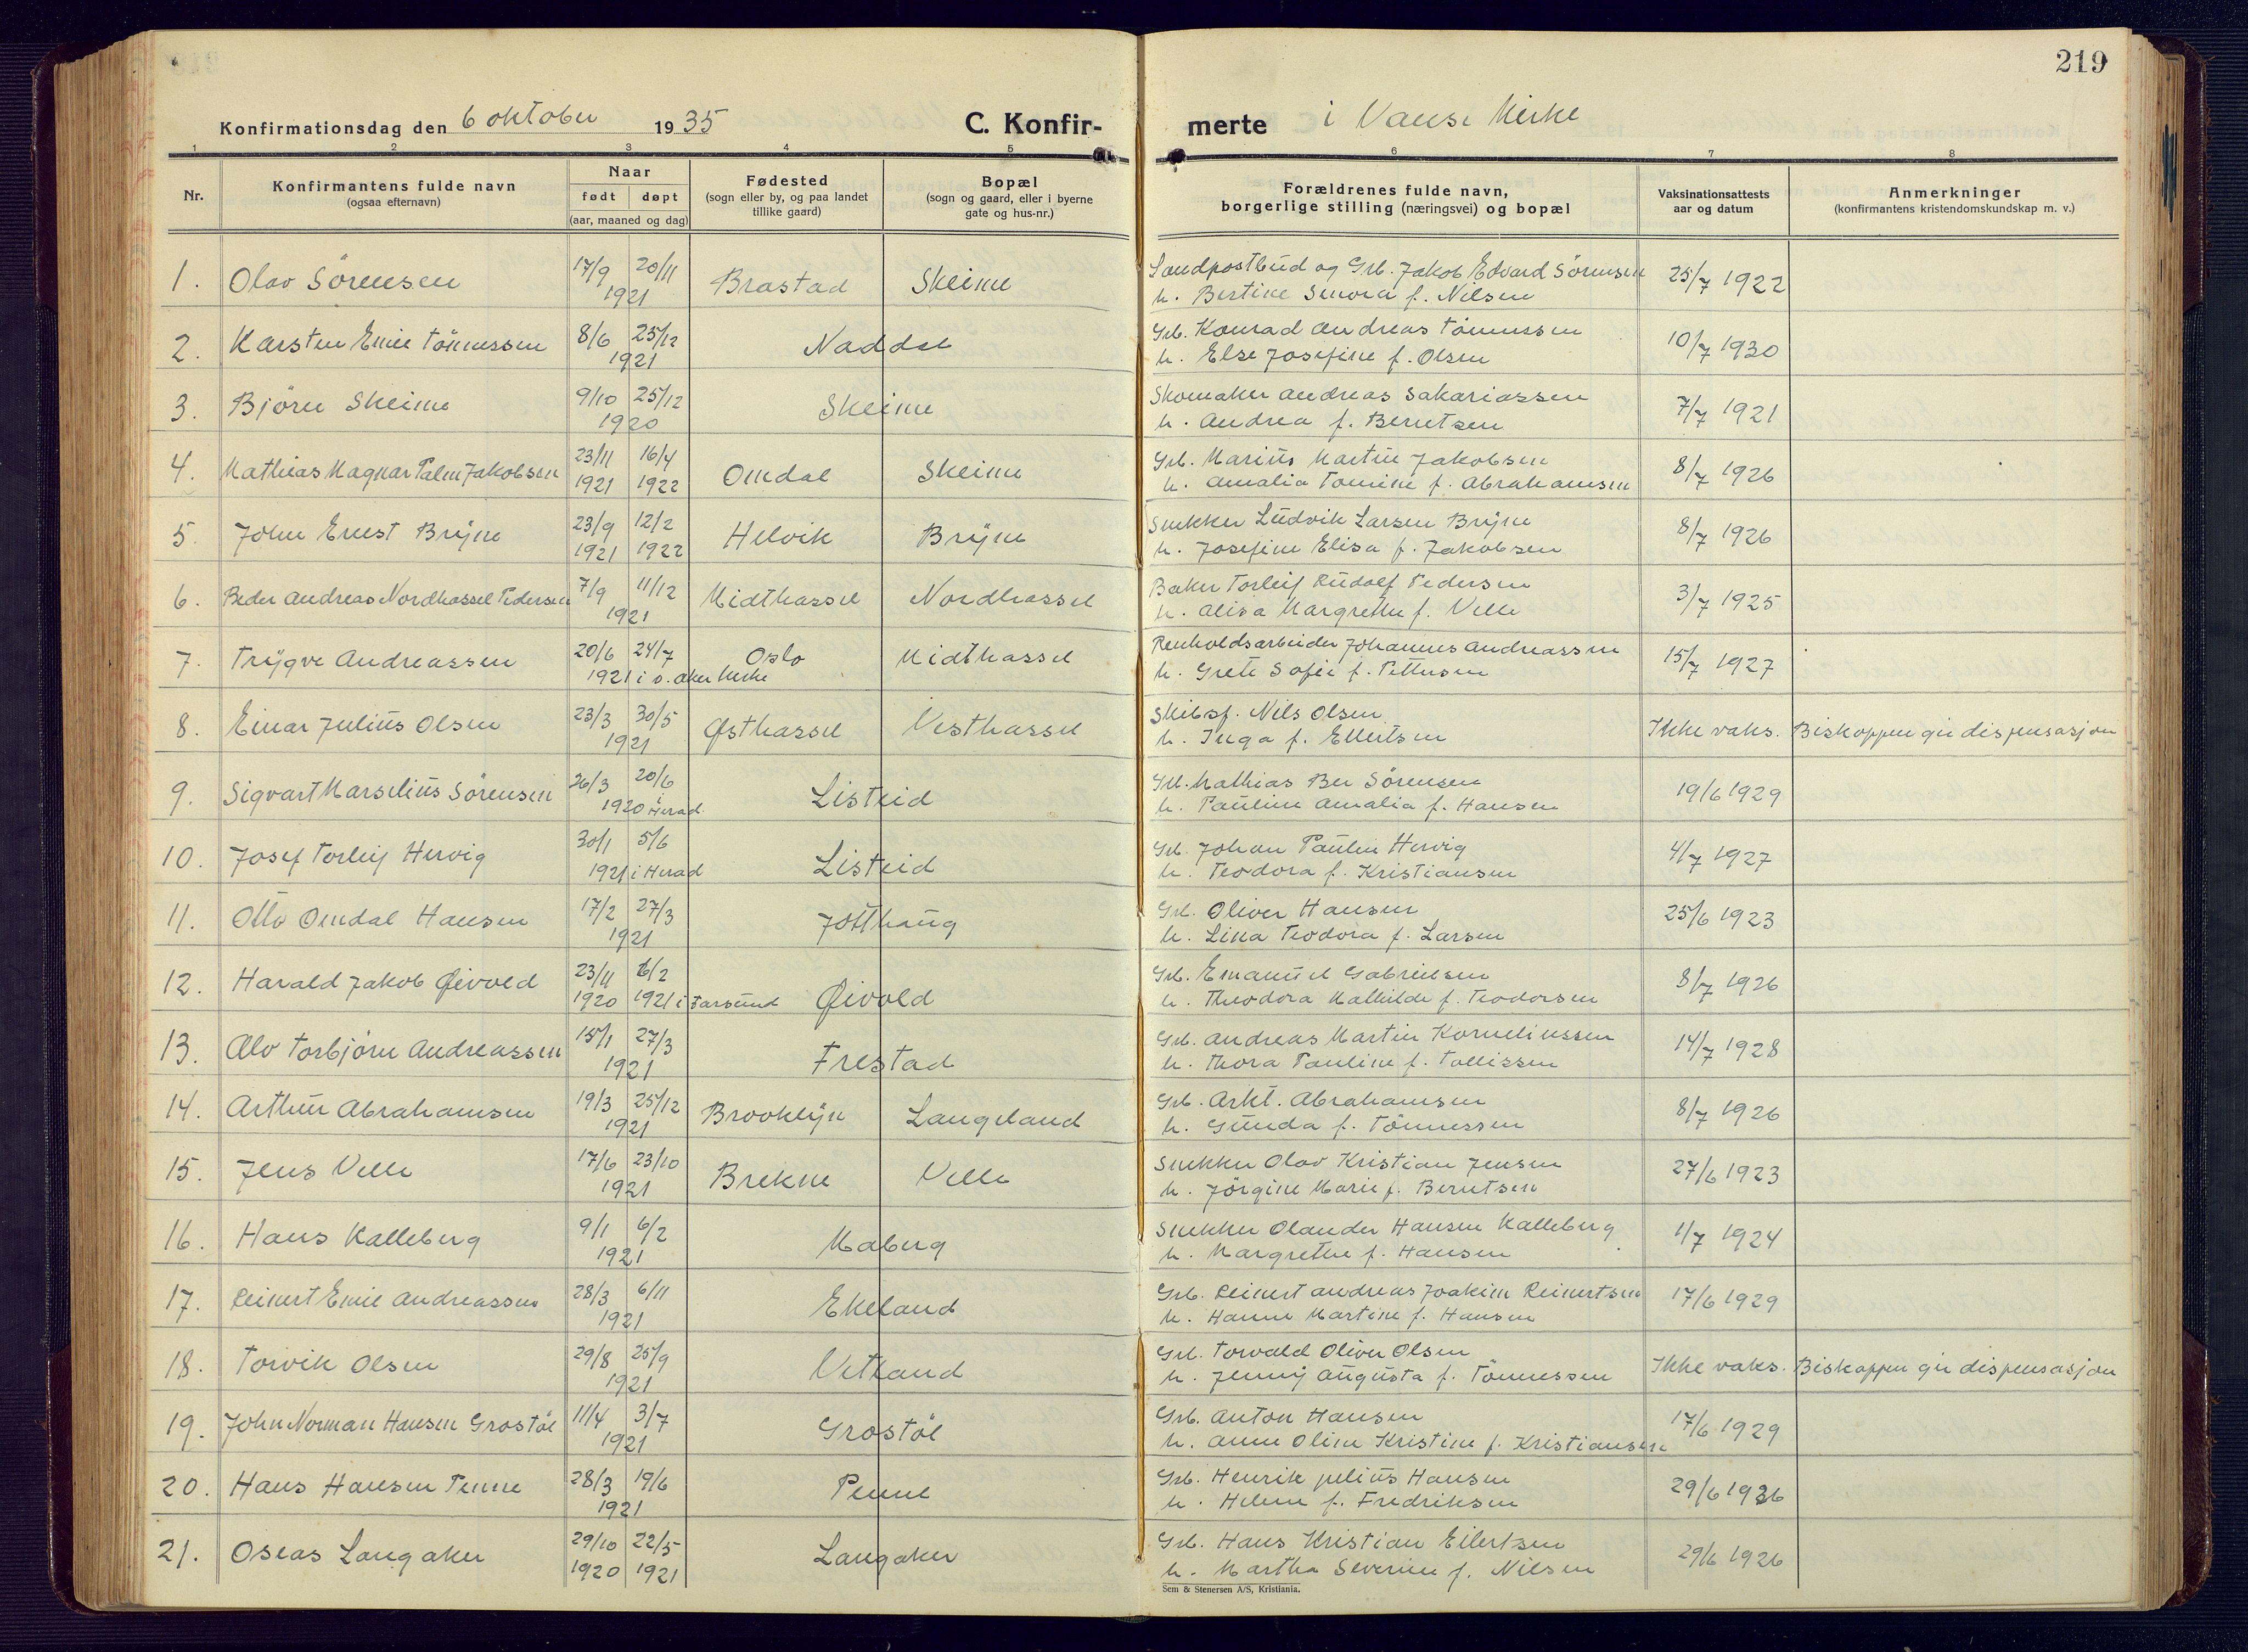 219
Konfirmationsdag den 6 oktober 1935 C. Konfir- merte i Vanse Kirke
1 2 3 4 5 6 7 8
Nr.
Konfirmantens fulde navn
(ogsaa efternavn)
Naar
født døpt
(aar, maaned og dag)
Fødested
(sogn eller by, og paa landet
tillike gaard)
Bopæl
(sogn og gaard, eller i byerne
gate og hus-nr.)
Forældrenes fulde navn,
borgerlige stilling (næringsvei) og bopæl
Vaksinationsattests
aar og datum
Anmerkninger
(konfirmantens kristendomskundskap m. v.)
1. Olav Sörensen 17/9 20/11 1921 Brastad Skeime
Landpostbud og Grb. Jakob Edvard Sörensen
h. Bertine f. Nilsen 25/7 1922
2. Karsten Emil Tönnessen 8/6 25/12 1921 Naddal
Grb. Konrad Andreas Tönnessen
h. Else Josefine f. Olsen 10/7 1930
3. Björn Skeime 9/10 25/12 1920 Skeime
Skomaker Andreas Sakariassen
h. Andrea f. Berntsen 7/7 1921
4. Mathias Magnar Palm Jakobsen 23/11 1921 16/4 1922 Omdal Skeime
Grb. Marius Martin Jakobsen
h. Amalia Tomine f. Abrahamsen 8/7 1926
5. John Ernst Bryne 23/9 1921 12/2 1922 Helvik Bryne
Snekker Ludvik Larsen Bryne
h. Josefine Elisa f. Jakobsen 8/7 1926
6. Peder Andreas Nordhassel Pedersen 7/9 11/12 1921 Midthassel Nordhassel
Baker Torleif Rudolf Pedersen
h. Alisa Margrethe f. Velle 3/7 1925
7. Trygve Andreassen 20/6 24/7 1921 i ö. Aker kirke Oslo Midthassel
Renholdsarbeider Johannes Andreassen
h. Grete Sofie f. Pettersen 15/7 1927
8. Einar Julius Olsen 23/3 30/5 1921 Østhassel Vesthassel
Skibsf. Nils Olsen
h. Inga f. Ellertsen Ikke vaks. Biskoppen gir dispensasjon
9. Sigvart Marselius Sörensen 26/3 20/6 1920 i Herad Listeid
Grb. Mathias Ber Sörensen
h. Pauline Amalia f. Hansen 19/6 1929
10. Josef Torleif Hervig 30/1 5/6 1921 i Herad Listeid
Grb. Johan Paulin Hervig
h. Teodora f. Kristiansen 4/7 1927
11. Otto Omdal Hansen 17/2 27/3 1921 Jotthaug
Grb. Oliver Hansen
h. Lina Teodora f. Larsen 25/6 1923
12. Harald Jakob Øivold 23/11 1920 6/2 1921 i Farsund Øivold
Grb. Emanuel Gabrielsen
h. Theodora Mathilde f. Teodorsen 8/7 1926
13. Alv Torbjörn Andreassen 15/1 27/3 1921 Frestad
Grb. Andreas Martin Korneliussen
h. Thora Pauline f. Tollissen 14/7 1928
14. Arthur Abrahamsen 19/3 25/12 1921 Brooklyn Langeland
Grb. Arkt. Abrahamsen
h. Gunda f. Tönnessen 8/7 1926
15. Jens Velle 17/6 23/10 1921 Brekne Velle
Snekker Olav Kristian Jensen
h. Jörgine Marie f. Berntsen 27/6 1923
16. Hans Kalleberg 9/1 6/2 1921 Maberg
Snekker Olander Hansen Kalleberg
h. Margrethe f. Hansen 1/7 1924
17. Reinert Emil Andreassen 28/3 6/11 1921 Ekeland
Grb. Reinert Andreas Joakim Reinertsen
h. Hanne Martine f. Hansen 17/6 1929
18. Torvik Olsen 29/8 25/9 1921 Vetland
Grb. Torvald Oliver Olsen
h. Jenny Augusta f. Tönnessen Ikke vaks. Biskoppen gir dispensasjon
19. John Norman Hansen Grostöl 11/4 3/7 1921 Grostöl
Grb. Anton Hansen
h. Anne Oline Kristine f. Kristiansen 17/6 1929
20. Hans Hansen Penne 28/3 19/6 1921 Penne
Grb. Henrik Julius Hansen
h. Helene f. Fredriksen 29/6 1926
21. Oseas Langaker 29/10 1920 22/5 1921 Langaker
Grb. Hans Kristian Eilertsen
h. Martha Severine f. Nilsen 29/6 1926
Sem & Stenersen A/S, Kristiania.